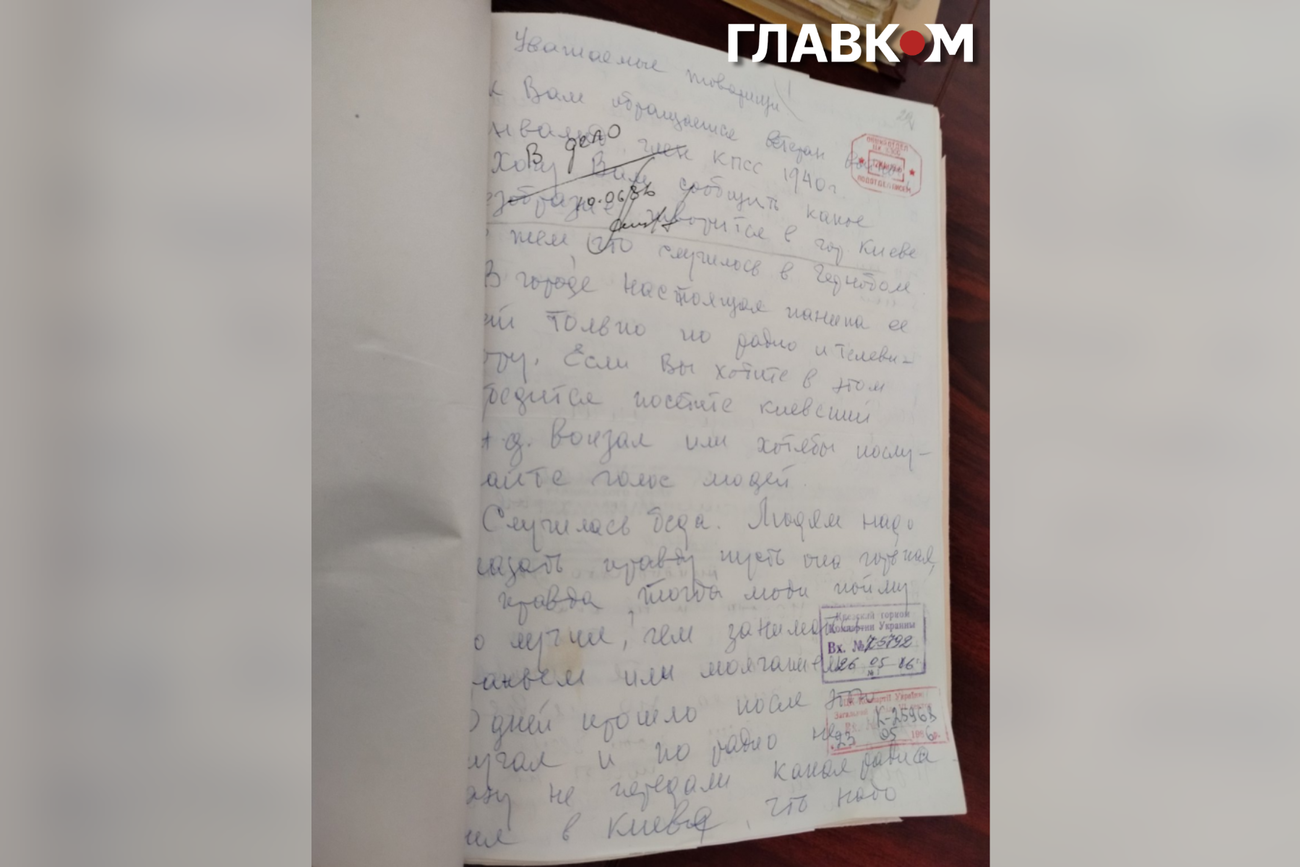 ГЛАВКОМ
Уважаемые товарищи!
к Вам обращается ветеран войны
член КПСС 1940г.
В дело
Хочу Вам сообщить какое
творится в гор Киеве
10.06.86
тем, что случилось в Чернобыле.
В городе настоящая паника ее
только по радио и телеви-
ору. Если Вы хотите в этом
бедится посетите киевский
ж.д. вокзал или хотябы послу-
айте голос людей.
Случилась беда. Людям надо
казать правду пусть она горькая,
правда тогда люди поймут
о лучше, чем заниматься
или молчанием
0 дней прошло после этого
и по радио не
разу не передали какая радиа
в Киеве, что надо
Киевский горком
Компартии Украины
Вх. №
26 05 86
Компартії України
К-25963
23 05 1986р.